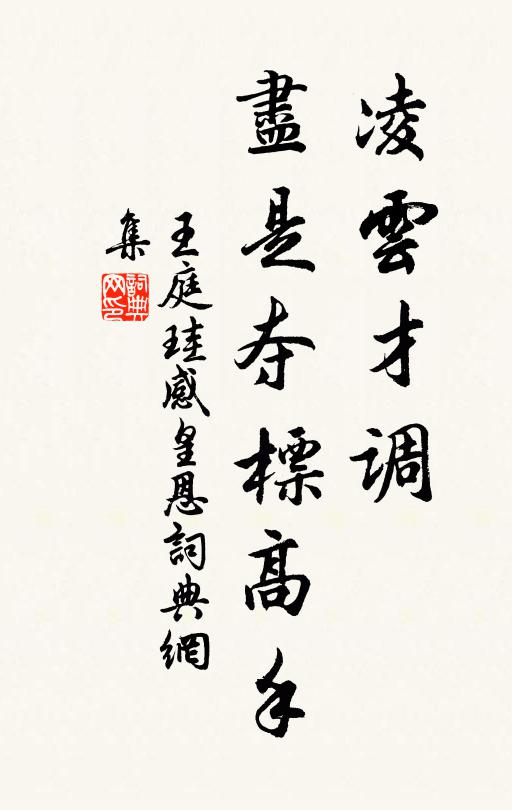 凌雲才調
盡是夺標高手
王庭珪感皇恩詞典網
集
詞典
网印